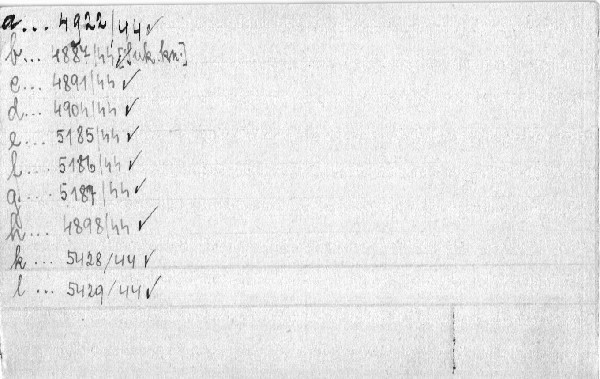 a... 4922/44 ✓
b... 4887/44 [suk.kn.]
c... 4891/44 ✓
d... 4904/44 ✓
e... 5185/44 ✓
f... 5186/44 ✓
g... 5187/44 ✓
h... 4898/44 ✓
k... 5428/44 ✓
l... 5429/44 ✓